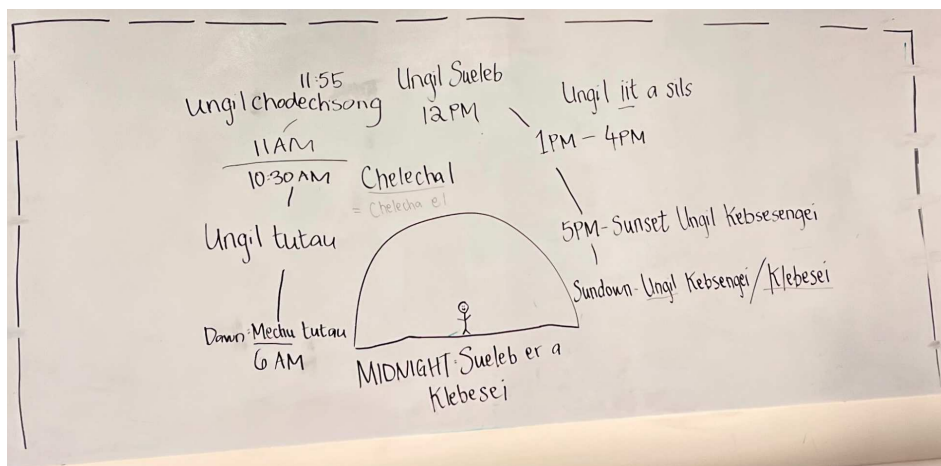 11:55
Ungil chodechsong
11AM
10:30AM
Ungil tutau
Dawn: Mechu tutau
6 AM
Ungil Sueleb
12PM
Chelechal
= Chelecha el
Ungil iit a sils
1PM - 4PM
5PM - Sunset Ungil Kebsesengei
Sundown - Ungil Kebsengei / Klebesei
MIDNIGHT: Sueleb er a
Klebesei